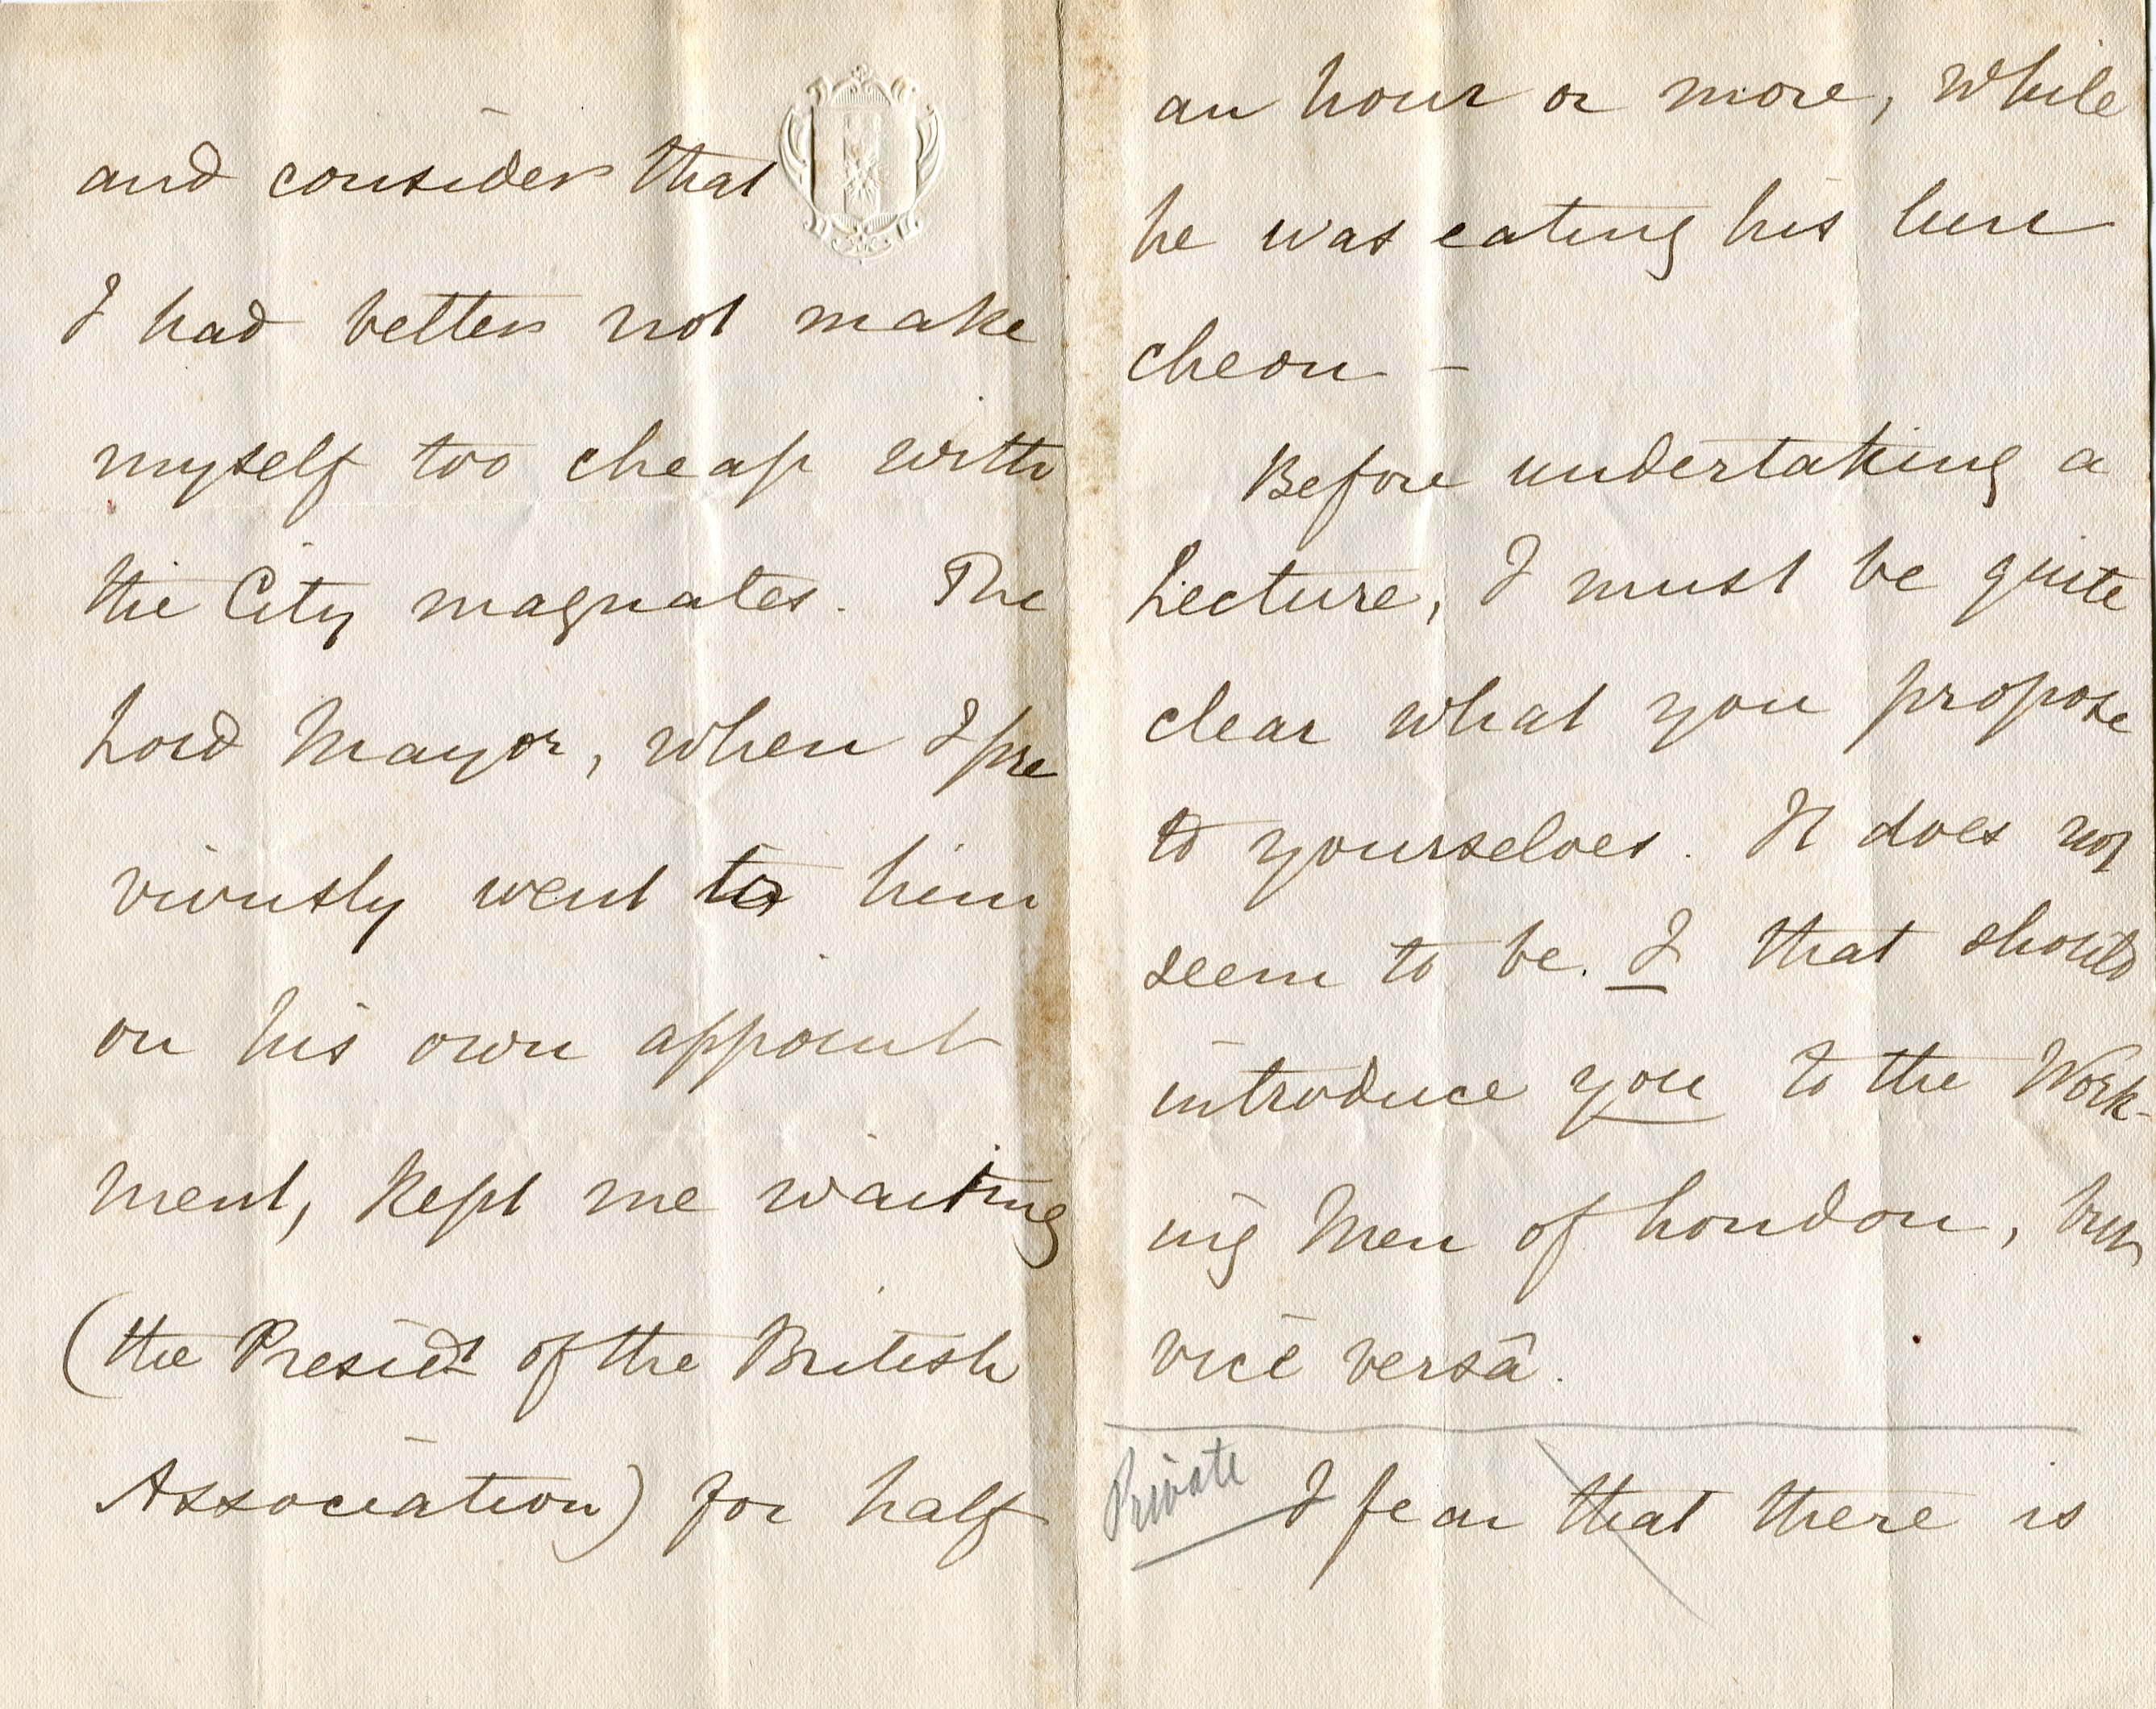 and consider that
I had better not make
myself too cheap with
the City magnates. The
Lord Mayor, when I pre
viously went to him
on his own appoint
ment, kept me waiting
(the Presidt of the British
Association) for half
an hour or more, while
he was eating his lun
cheon –
Before undertaking a
Lecture, I must be quite
clear what you propose
to yourselves. It does not
seem to be I that should
introduce you to the Work-
ing Men of London, but
vice versâ.
Private I fear that there is